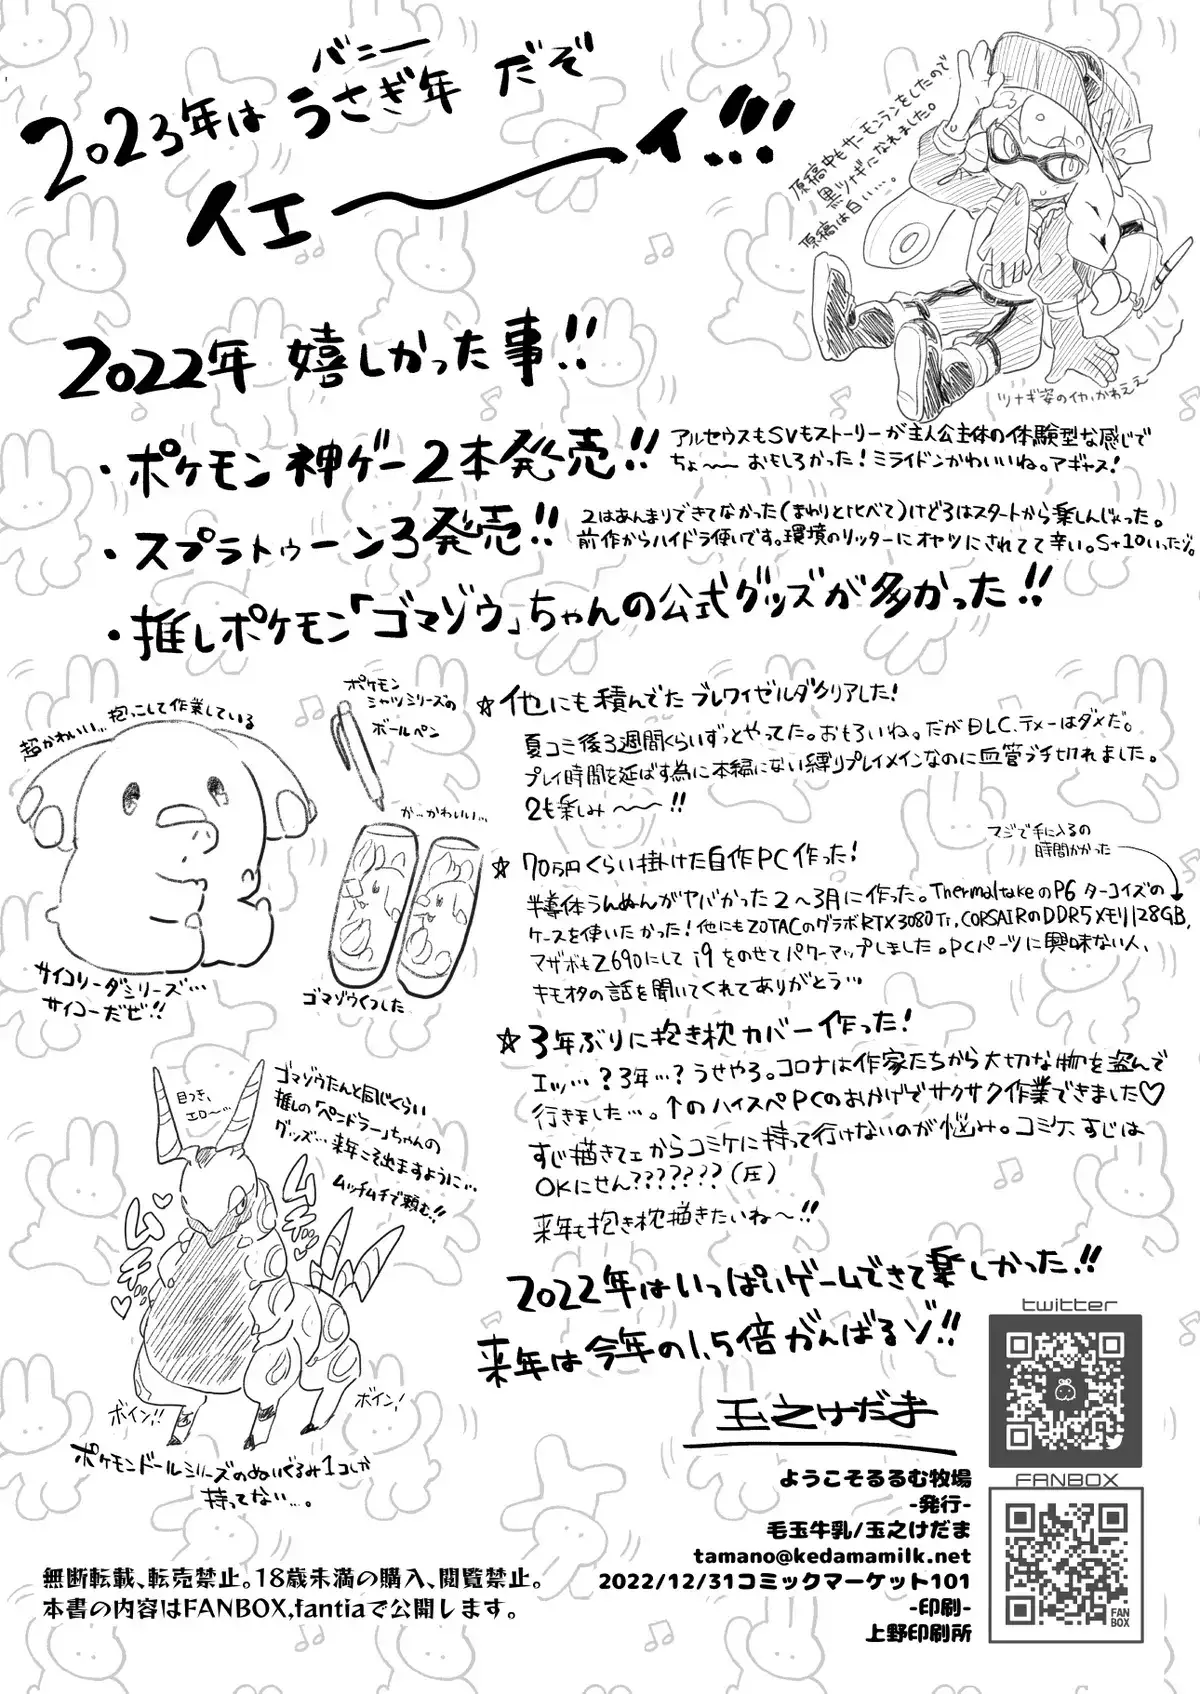 バニー
2023年は うさぎ年 だぞ
イエ〜〜ィ!!!
原稿中もサーモンランをしたので
黒ツナギになれました。
原稿は白い…。
ツナギ姿のイカ、かわええ
2022年 嬉しかった事!!
・ポケモン 神ゲー2本発売!!
アルセウスもSVもストーリーが主人公主体の体験型な感じで
ちょ〜〜おもしろかった!ミライドンかわいいね。アギャス!
・スプラトゥーン3発売!!
2はあんまりできてなかった(まわりと比べて)けど3はスタートから楽しんじゃった。
前作からハイドラ使いです。環境のリッターにオヤツにされてて辛い。S+10いったゾ。
・推しポケモン「ゴマゾウ」ちゃんの公式グッズが多かった!!
超かわいい…抱っこして作業している
サイコソーダシリーズ…
サイコーだぜ!!
ポケモン
シャツシリーズの
ボールペン
か…かわいい…
ゴマゾウくつした
☆他にも積んでた ブレワイゼルダクリアした!
夏コミ後3週間くらいずっとやってた。おもろいね。だがDLC、テメーはダメだ。
プレイ時間を延ばす為に本編にない縛りプレイメインなのに血管ブチ切れました。
2も楽しみ〜〜!!
☆70万円くらい掛けた自作PC作った!
マジで手に入るの
時間かかった
半導体うんぬんがヤバかった2〜3月に作った。ThermaltakeのP6 ターコイズの
ケースを使いたかった!他にもZOTACのグラボRTX3080Ti,CORSAIRのDDR5メモリ128GB,
マザボもZ690にして i9をのせてパワーマップしました。PCパーツに興味ない人、
キモオタの話を聞いてくれてありがとう…
☆3年ぶりに抱き枕カバー作った!
エッ…?3年…?うせやろ。コロナは作家たちから大切な物を盗んで
行きました…。↑のハイスペPCのおかげでサクサク作業できました♡
すじ描きてェからコミケに持って行けないのが悩み。コミケ、すじは
OKにせん???????(圧)
来年も抱き枕描きたいね〜!!
目つき、
エロ〜…
ゴマゾウたんと同じくらい
推しの「ペンドラー」ちゃんの
グッズ…来年こそ出ますように…
ムッチムチで頼む!!
ムチッ♡
ムチッ
ボイン!!
ボイン!
ポケモンドールシリーズのぬいぐるみ1コしか
持ってない…。
2022年はいっぱいゲームできて楽しかった!!
来年は今年の1.5倍がんばるゾ!!
玉之けだま
twitter
FANBOX
FAN
BOX
ようこそるるむ牧場
-発行-
毛玉牛乳/玉之けだま
tamano@kedamamilk.net
2022/12/31コミックマーケット101
-印刷-
上野印刷所
無断転載、転売禁止。18歳未満の購入、閲覧禁止。
本書の内容はFANBOX,fantiaで公開します。